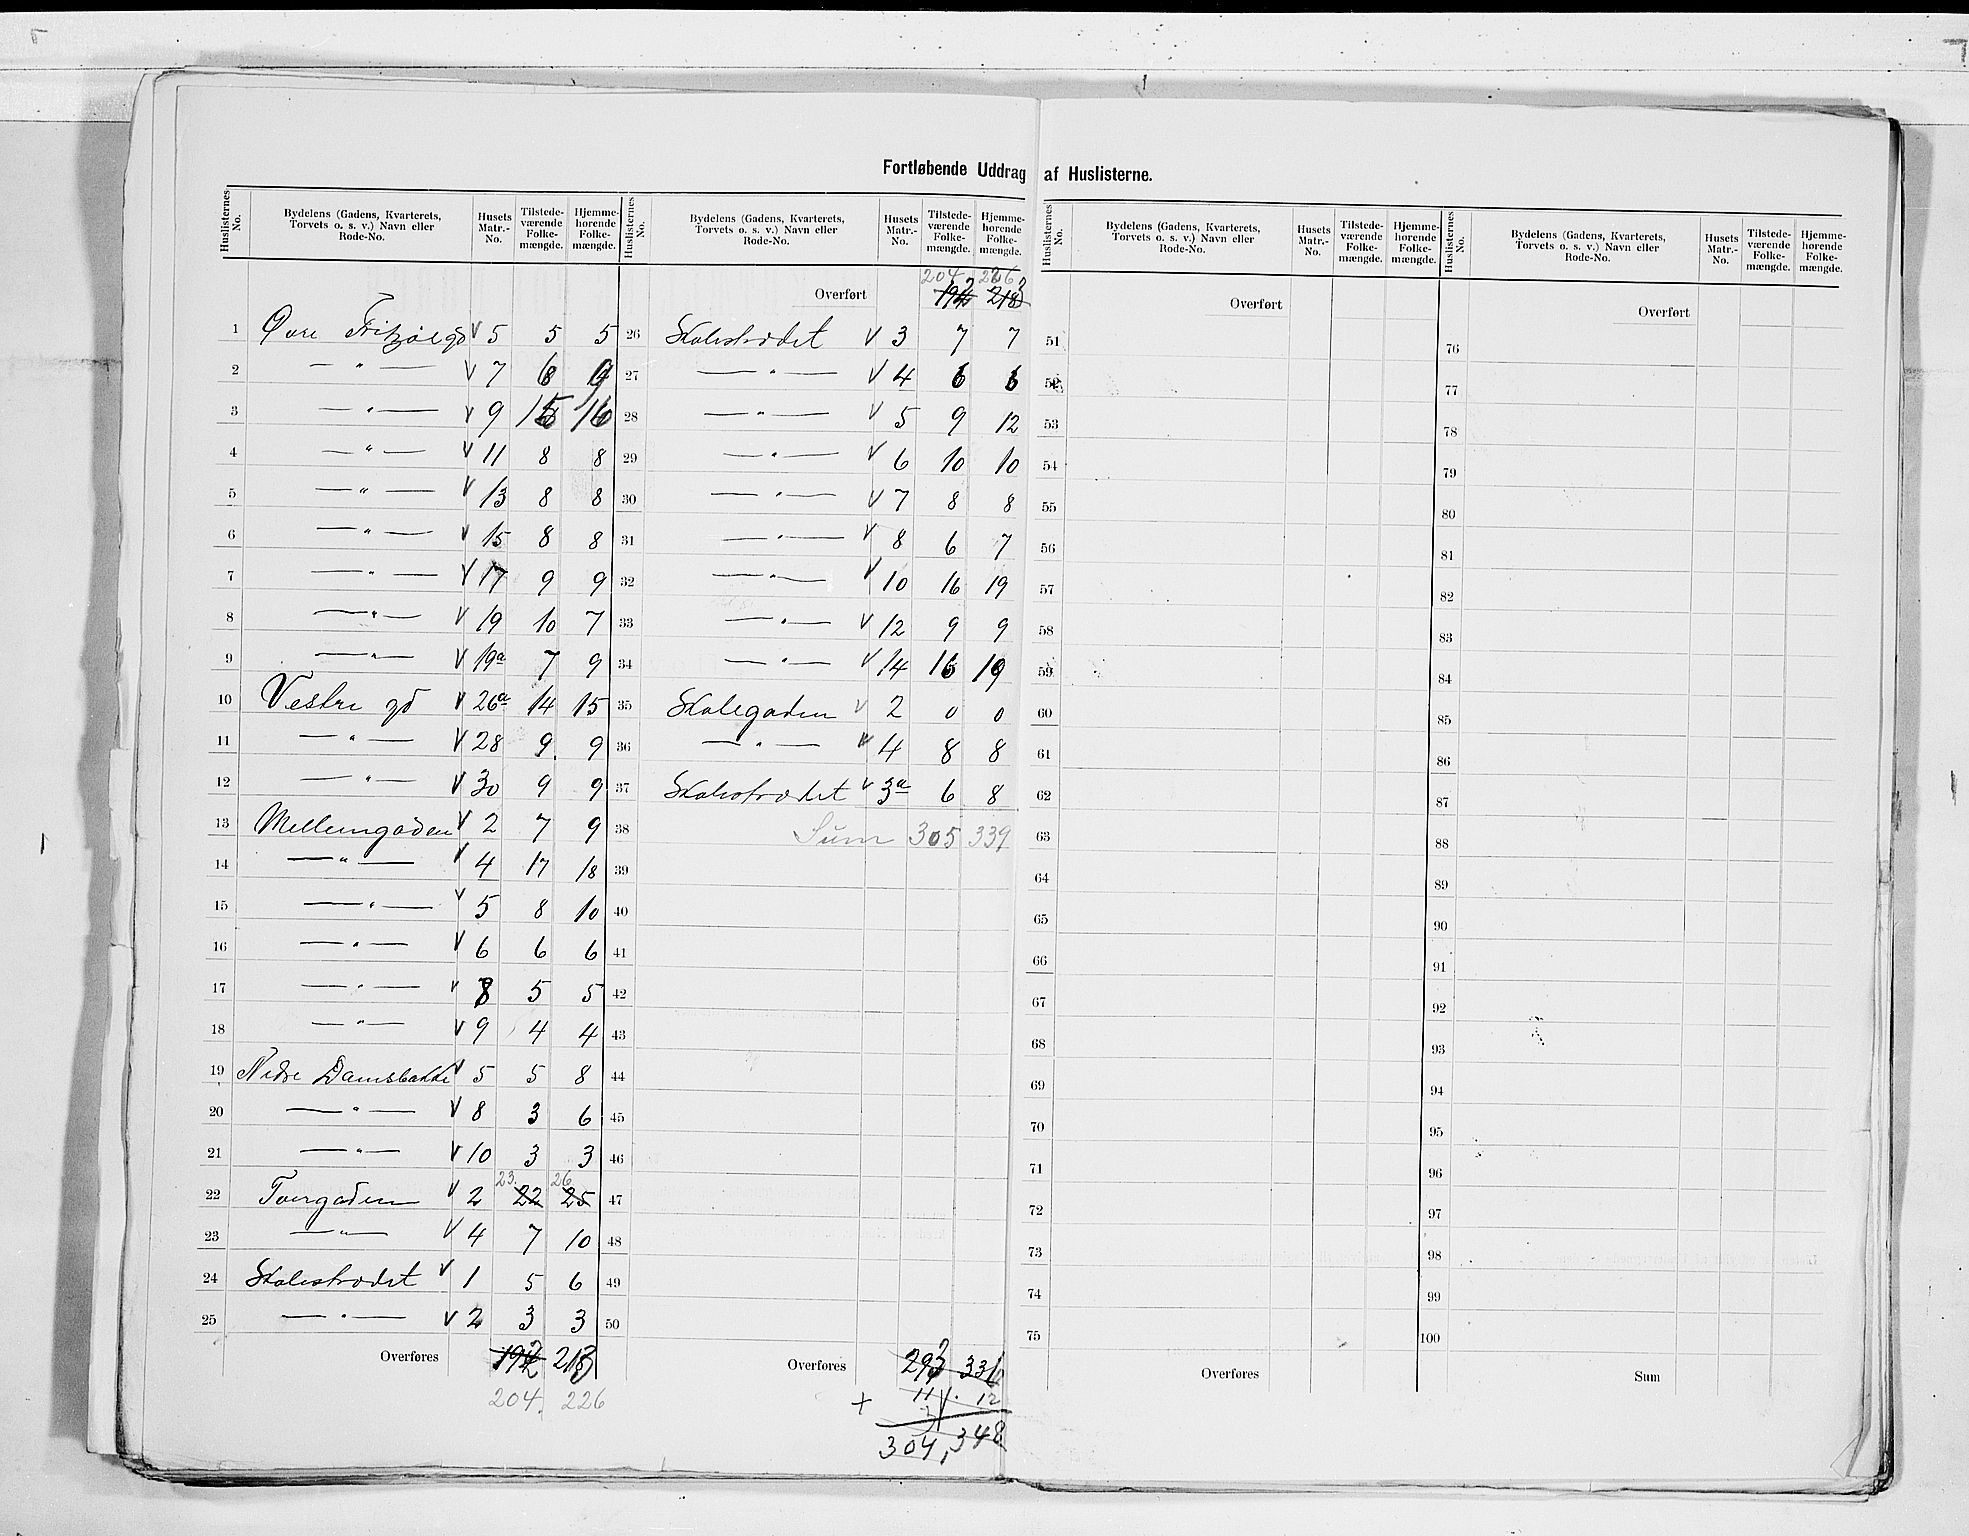 Fortløbende Uddrag af Huslisterne.
Huslisternes No. Bydelens (Gadens, Kvarterets, Torvets o. s. v.) Navn eller Rode-No. Husets Matr.-No. Tilstedeværende Folkemængde. Hjemmehørende Folkemængde.
1 Øvre Fritzøegd V 5 5 5
2 — " — V 7
3 — " — V 9 15 16
4 — " — V 11 8 8
5 — " — V 13 8 8
6 — " — V 15 8 8
7 — " — V 17 9 9
8 — " — V 19 10 7
9 — " — V 19a 7 9
10 Vestre gd V 26a 14 15
11 — " — V 28 9 9
12 — " — V 30 9 9
13 Mellemgaden V 2 7 9
14 — " — V 4 17 18
15 — " — V 5 8 10
16 — " — V 6 6 6
17 — " — V 8 5 5
18 — " — V 9 4 4
19 Nedre Damsbakke V 5 5 8
20 — " — V 8 3 6
21 — " — V 10 3 3
23. 26
22 Tvergaden V 2 22 25
23 — " — V 4 7 10
24 Skolestrædet V 1 5 6
25 — " — V 2 3 3
Overføres 192 213
204. 226
Huslisternes No. Bydelens (Gadens, Kvarterets, Torvets o. s. v.) Navn eller Rode-No. Husets Matr.-No. Tilstedeværende Folkemængde. Hjemmehørende Folkemængde.
204 226
Overført 192 213
26 Skolestrædet V 3 7 7
27 — " — V 4 6 6
28 — " — V 5 9 12
29 — " — V 6 10 10
30 — " — V 7 8 8
31 — " — V 8 6 7
32 — " — V 10 16 19
33 — " — V 12 9 9
34 — " — V 14 16 19
35 Skolegaden V 2 0 0
36 — " — V 4 8 8
37 Skolestrædet V 3a 6 8
38 Sum 305 339
39
40
41
42
43
44
45
46
47
48
49
50
Overføres 293 336
+ 11 12
304, 348
Huslisternes No. Bydelens (Gadens, Kvarterets, Torvets o. s. v.) Navn eller Rode-No. Husets Matr.-No. Tilstedeværende Folkemængde. Hjemmehørende Folkemængde.
Overført
51
52
53
54
55
56
57
58
59
60
61
62
63
64
65
66
67
68
69
70
71
72
73
74
75
Overføres
Huslisternes No. Bydelens (Gadens, Kvarterets, Torvets o. s. v.) Navn eller Rode-No. Husets Matr.-No. Tilstedeværende Folkemængde. Hjemmehørende Folkemængde.
Overført
76
77
78
79
80
81
82
83
84
85
86
87
88
89
90
91
92
93
94
95
96
97
98
99
100
Sum